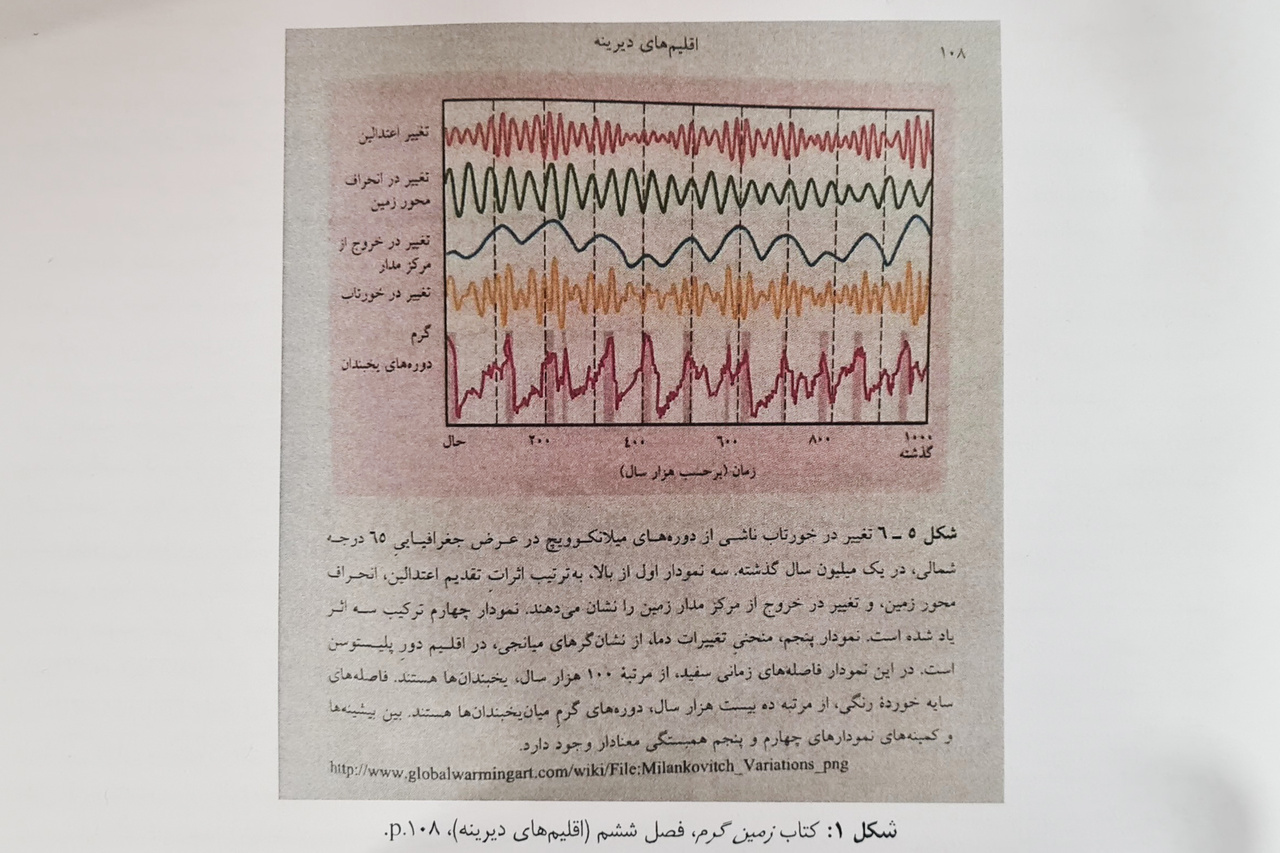 اقلیم‌های دیرینه
۱۰۸
تغییر اعتدالین
تغییر در انحراف
محور زمین
تغییر در خروج از
مرکز مدار
تغییر در خورتاب
گرم
دوره‌های یخبندان
حال
۲۰۰
۴۰۰
۶۰۰
۸۰۰
۱۰۰۰
گذشته
زمان (برحسب هزار سال)
شکل ۵ ــ ۶ تغییر در خورتاب ناشی از دوره‌های میلانکوویچ در عرض جغرافیایی ۶۵ درجه
شمالی، در یک میلیون سال گذشته. سه نمودار اول از بالا، به‌ترتیب اثراتِ تقدیم اعتدالین، انحراف
محور زمین، و تغییر در خروج از مرکز مدار زمین را نشان می‌دهند. نمودار چهارم ترکیب سه اثر
یاد شده است. نمودار پنجم، منحنیِ تغییرات دما، از نشان‌گرهای میانجی، در اقلیم دورِ پلیستوسن
است. در این نمودار فاصله‌های زمانی سفید، از مرتبهٔ ۱۰۰ هزار سال، یخبندان‌ها هستند. فاصله‌های
سایه خوردهٔ رنگی، از مرتبه ده بیست هزار سال، دوره‌های گرمِ میان‌یخبندان‌ها هستند. بین بیشینه‌ها
و کمینه‌های نمودارهای چهارم و پنجم همبستگی معنادار وجود دارد.
http://www.globalwarmingart.com/wiki/File:Milankovitch_Variations_png
شکل ۱: کتاب زمین گرم، فصل ششم (اقلیم‌های دیرینه)، p.۱۰۸.